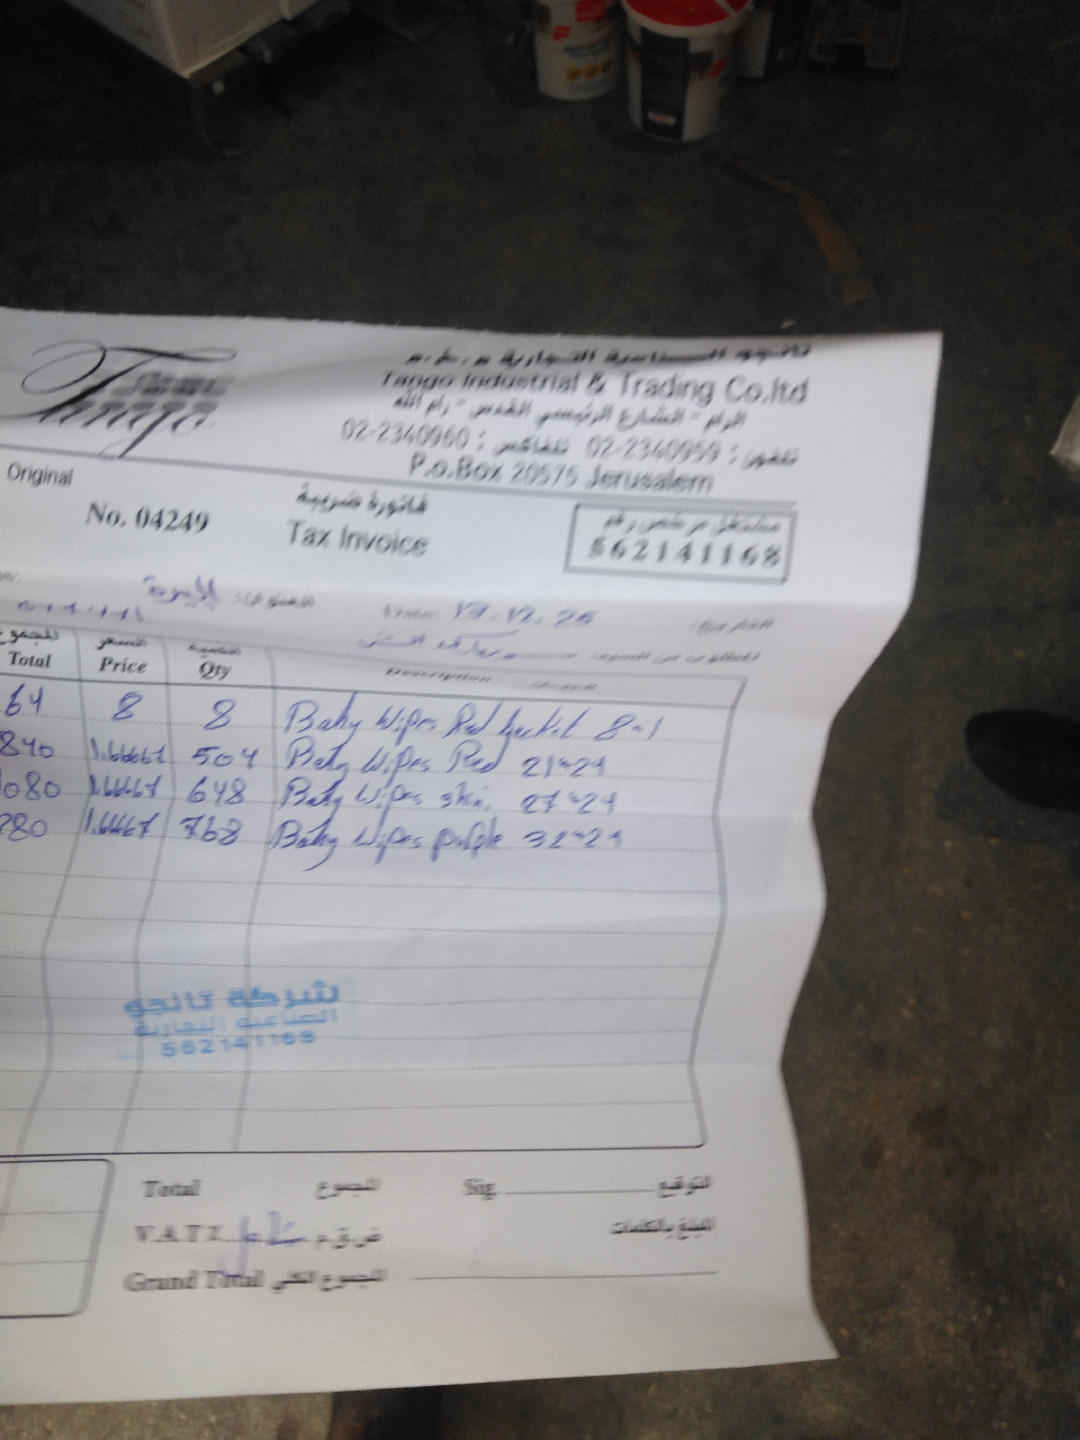 Tango
تانجو الصناعية التجارية م.خ.م
Tango Industrial & Trading Co.ltd
الرام - الشارع الرئيسي القدس - رام الله
تلفون : 02-2340959 تلفاكس : 02-2340960
P.o.Box 20575 Jerusalem
Original
No. 04249
فاتورة ضريبية
Tax Invoice
مشتغل مرخص رقم
562141168
التاريخ:
Date:
العنوان: البيرة
المطلوب من السيد:
المجموع السعر الكمية البيــــان
Total Price Qty Description
64 8 8 Baby Wipes Red 8*1
840 1.66667 504 Baby Wipes Red 21*24
1080 1.66667 648 Baby Wipes skin 27*24
280 1.6667 768 Baby Wipes purple 32*24
شركة تانجو
الصناعية التجارية
562141168
Total المجموع Sig. التوقيع
V.A.T ض.ق.م المبلغ بالكلمات
Grand Total المجموع الكلي